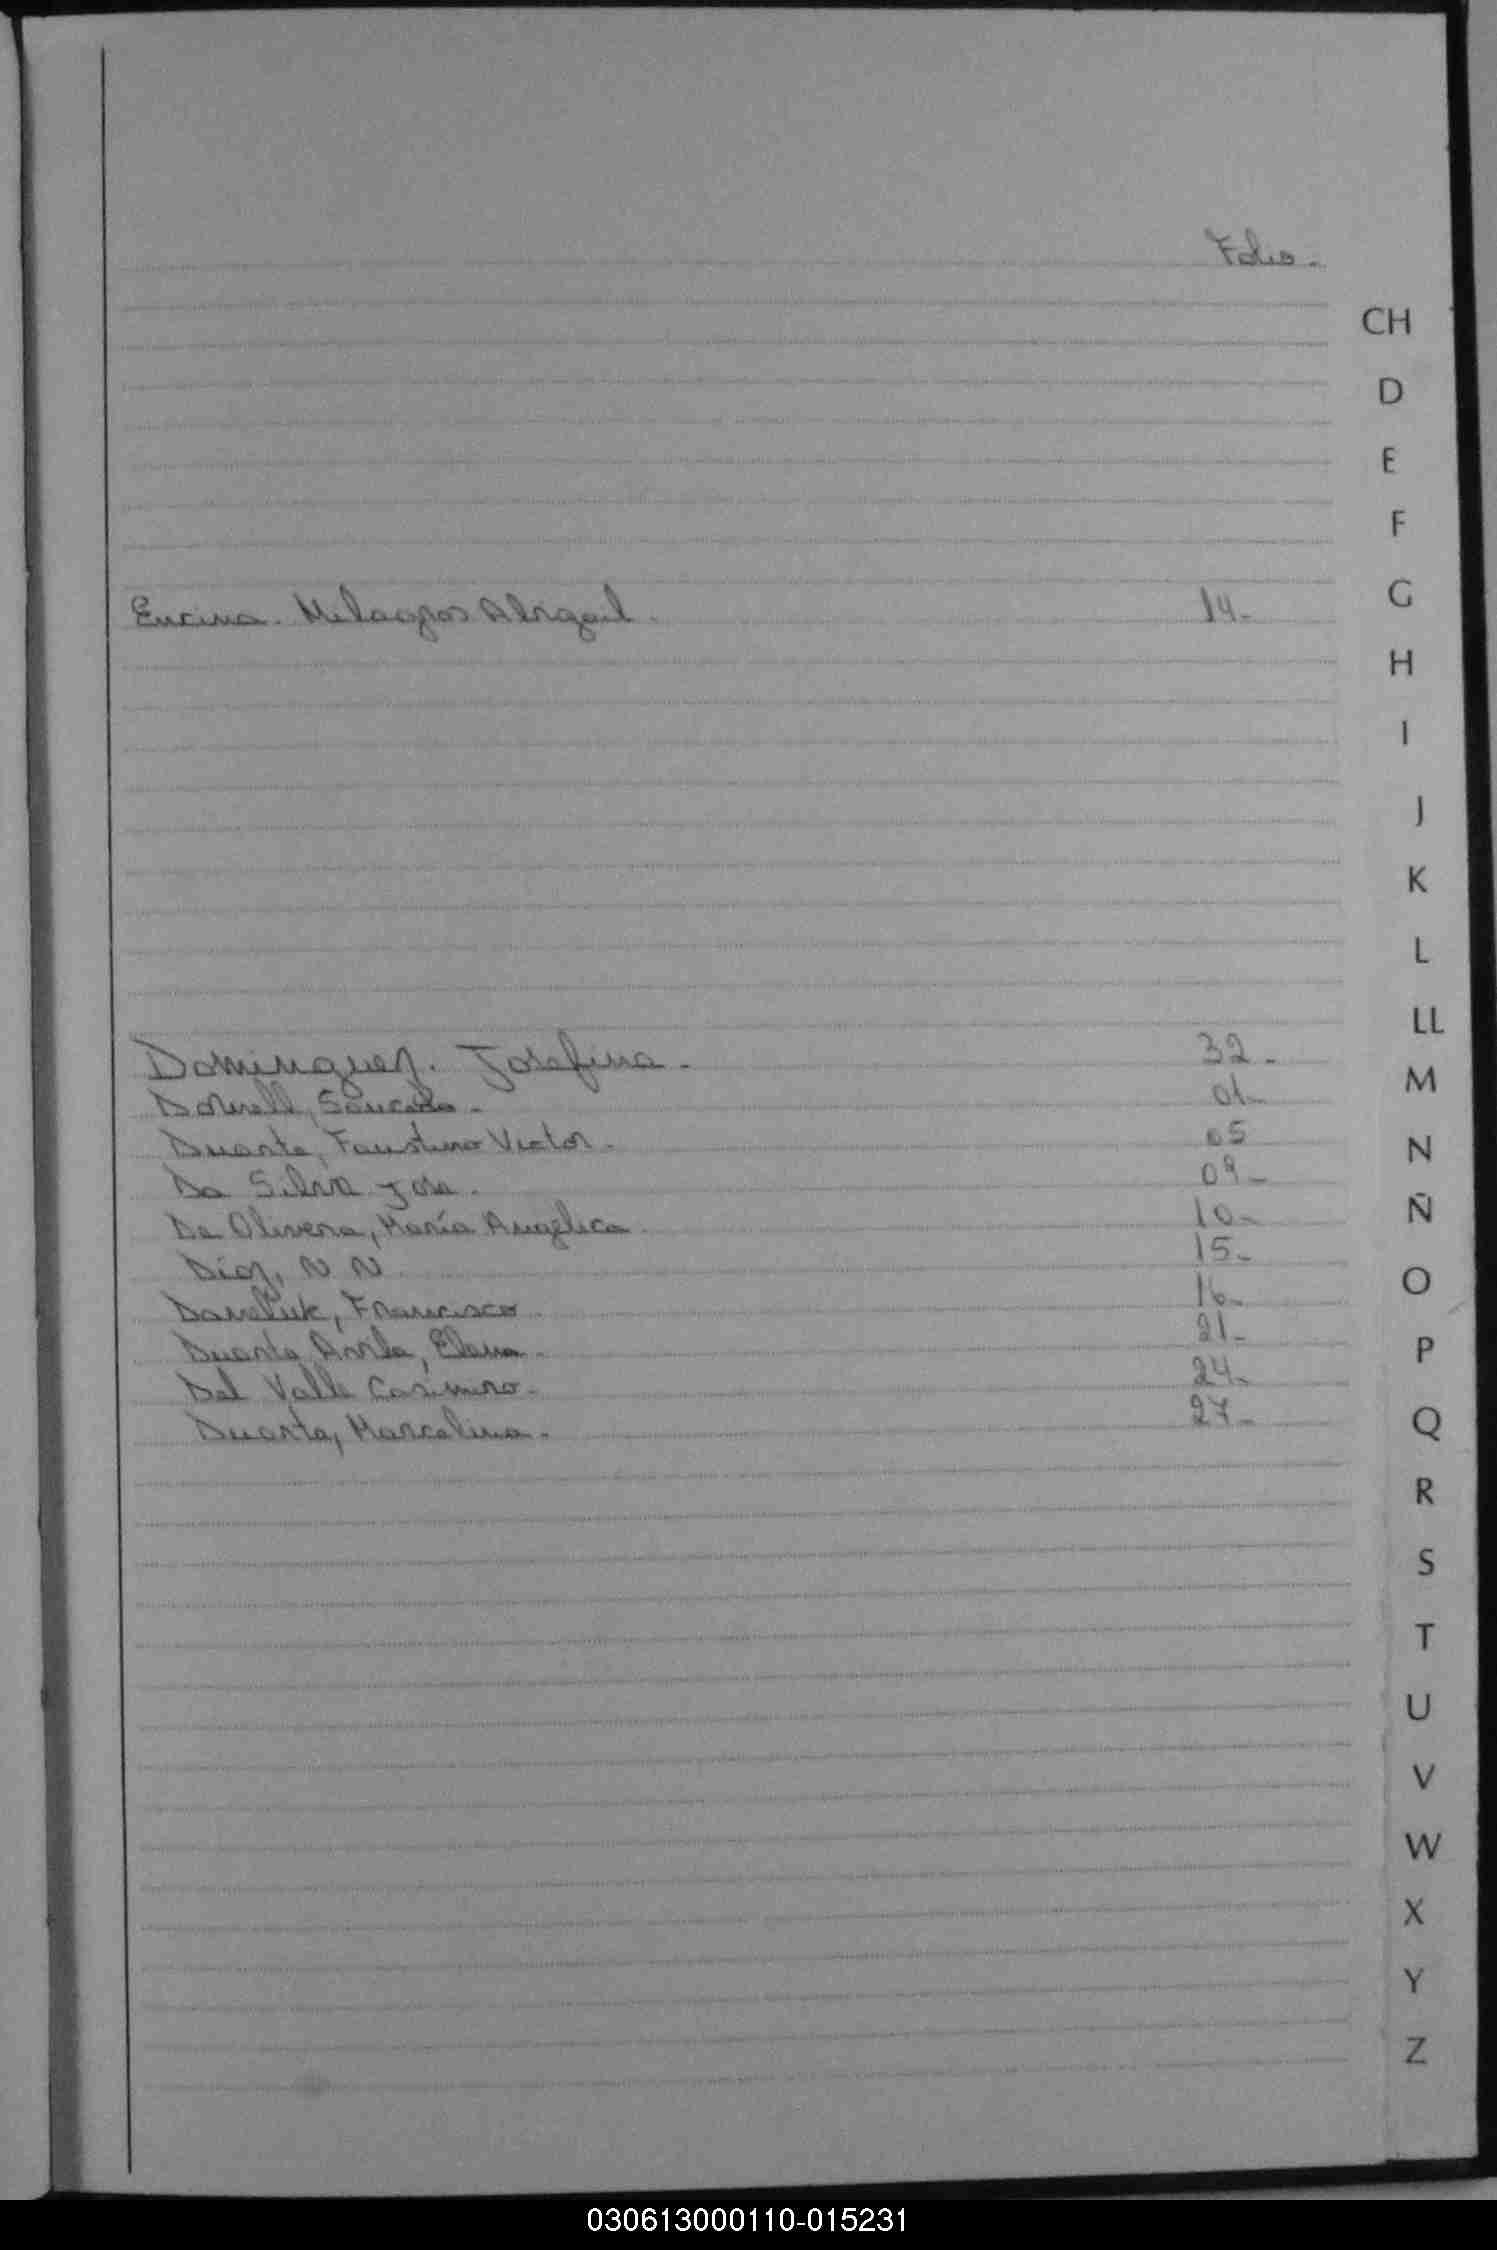 Folio -
CH
D
E
F
G
Encina. Milagros Abigail. 14-
H
I
J
K
L
LL
Dominguez. Josefina - 32-
M
Dornell, 01-
Duarte, Faustino Victor - 05
N
Da Silva Jose. 09-
De Olivera, María Angelica. 10-
Ñ
Diaz, N N 15-
O
Daneliuk, Francisco 16-
Duarte Avila, Elena - 21-
P
Del Valle Casimiro - 24-
Duarte, Marcelina - 27-
Q
R
S
T
U
V
W
X
Y
Z
030613000110-015231